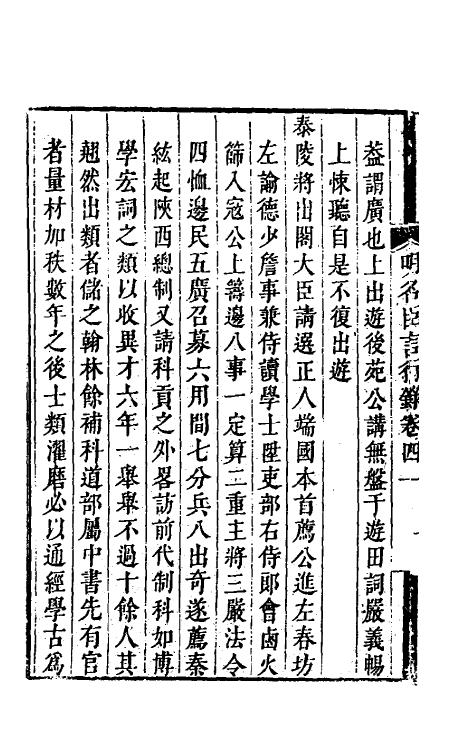 益謂廣也上出遊後苑公講無盤于遊田詞嚴義暢
上悚聽自是不復出遊
泰陵將出閣大臣請選正人端國本首薦公進左春坊
左諭德少詹事兼侍讀學士陞吏部右侍郎會鹵火
篩入寇公上籌邊八事一定算二重主將三嚴法令
四恤邊民五廣召募六用間七分兵八出奇遂薦秦
紘起陝西總制又請科貢之外畧訪前代制科如博
學宏詞之類以收異才六年一舉舉不過十餘人其
翹然出類者儲之翰林餘補科道部屬中書先有官
者量材加秩數年之後士類濯磨必以通經學古爲
明名臣言行錄卷四一